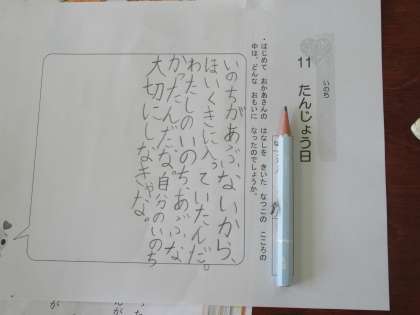 いのち
11 たんじょう日
・はじめて おかあさんの はなしを きいた なつこの こころの
中は、どんな おもいに なったのでしょうか。
いのちがあぶないから、
ほいくきに入っていたんだ。
わたしのいのち、あぶな
かったんだな。自分のいのち
大切にしなきゃな。